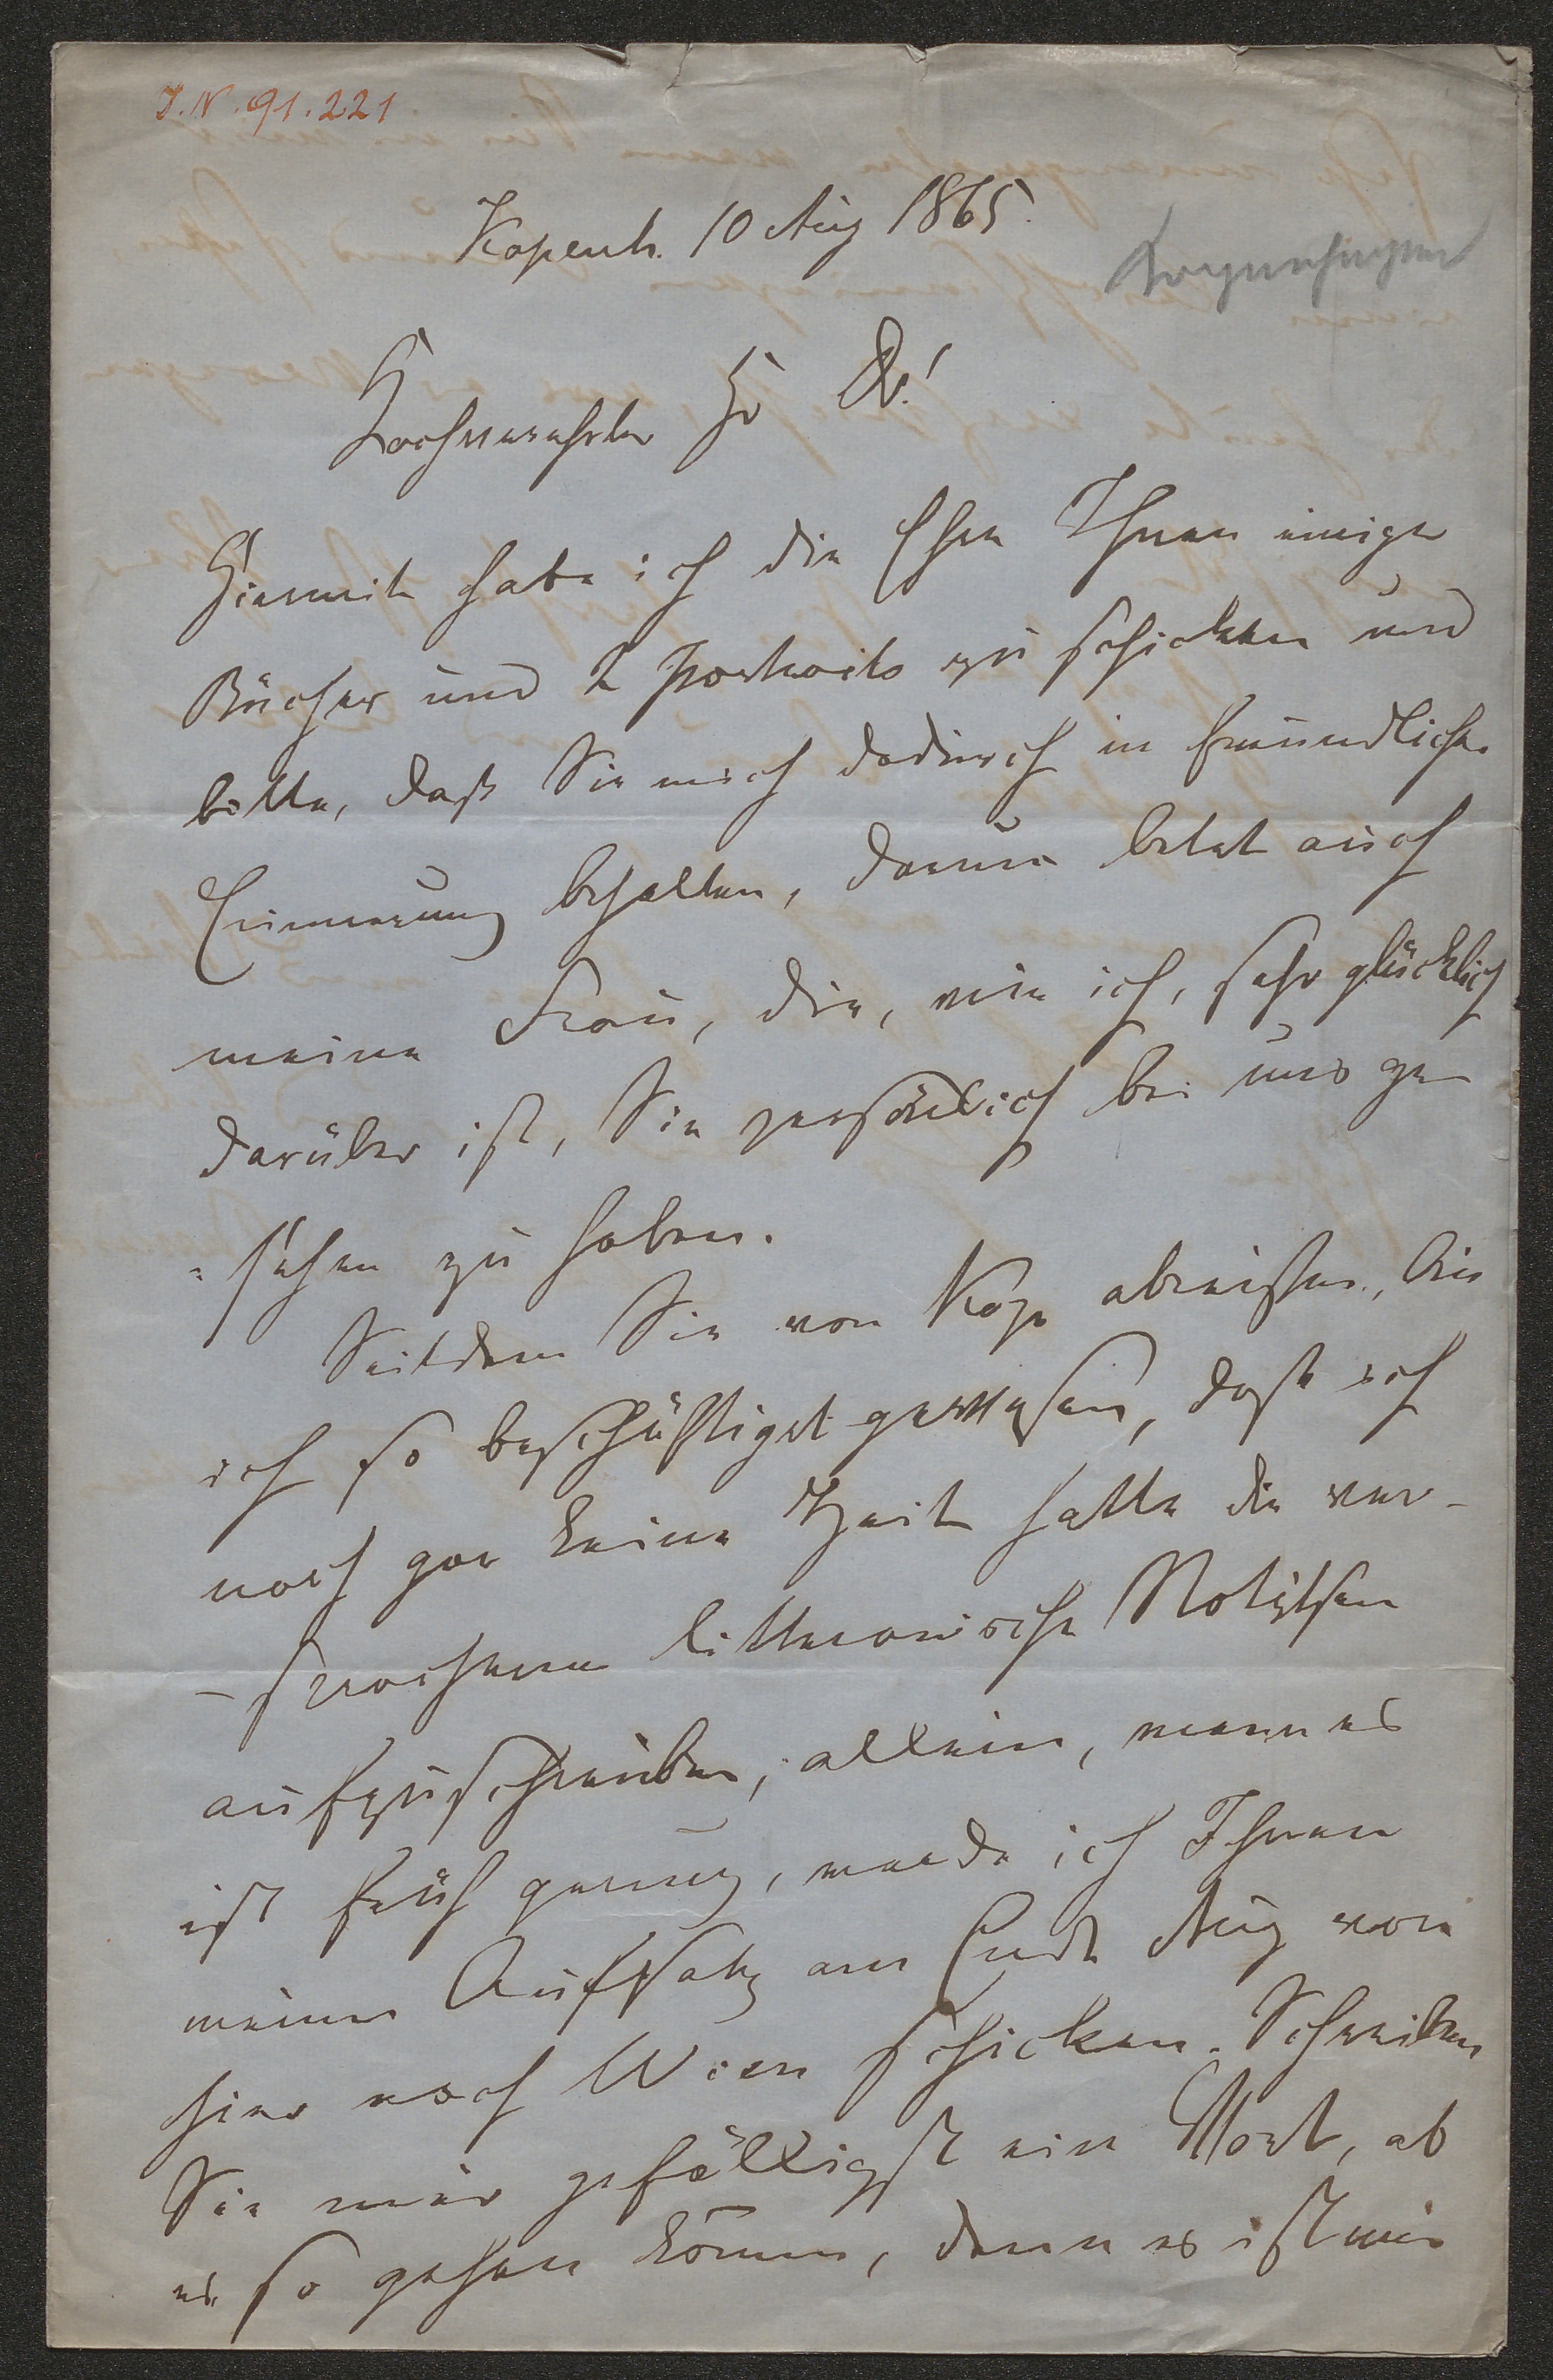 I.N. 91.221
Kopenh. 10 Aug 1865.
Kopenhagen
Hochverehrter Hr Dr!
Hiermit habe ich die Ehre Ihnen einige
Bücher und 2 Portraits zu schicken und
bitte, daß Sie mich dadurch in freundliche
Erinnerung behalten, darum betet auch
meine Frau, die, wie ich, sehr glücklich
darüber ist, Sie persönlich bei uns ge
=sehen zu haben.
Seitdem Sie von Kop abreisten, bin
ich so beschäftiget gewesen, daß ich
noch gar keine Zeit hatte die ver-
-sprochenen litterarische Notitsen
aufzuschreiben, allein, wenn es
ist früh genug, werde ich Ihnen
meinen Aufsatz am Ende Aug von
hier nach Wien schicken. Schreiben
Sie mir gefälligst ein Wort, ob
es so gehen könne, denn es ist mir